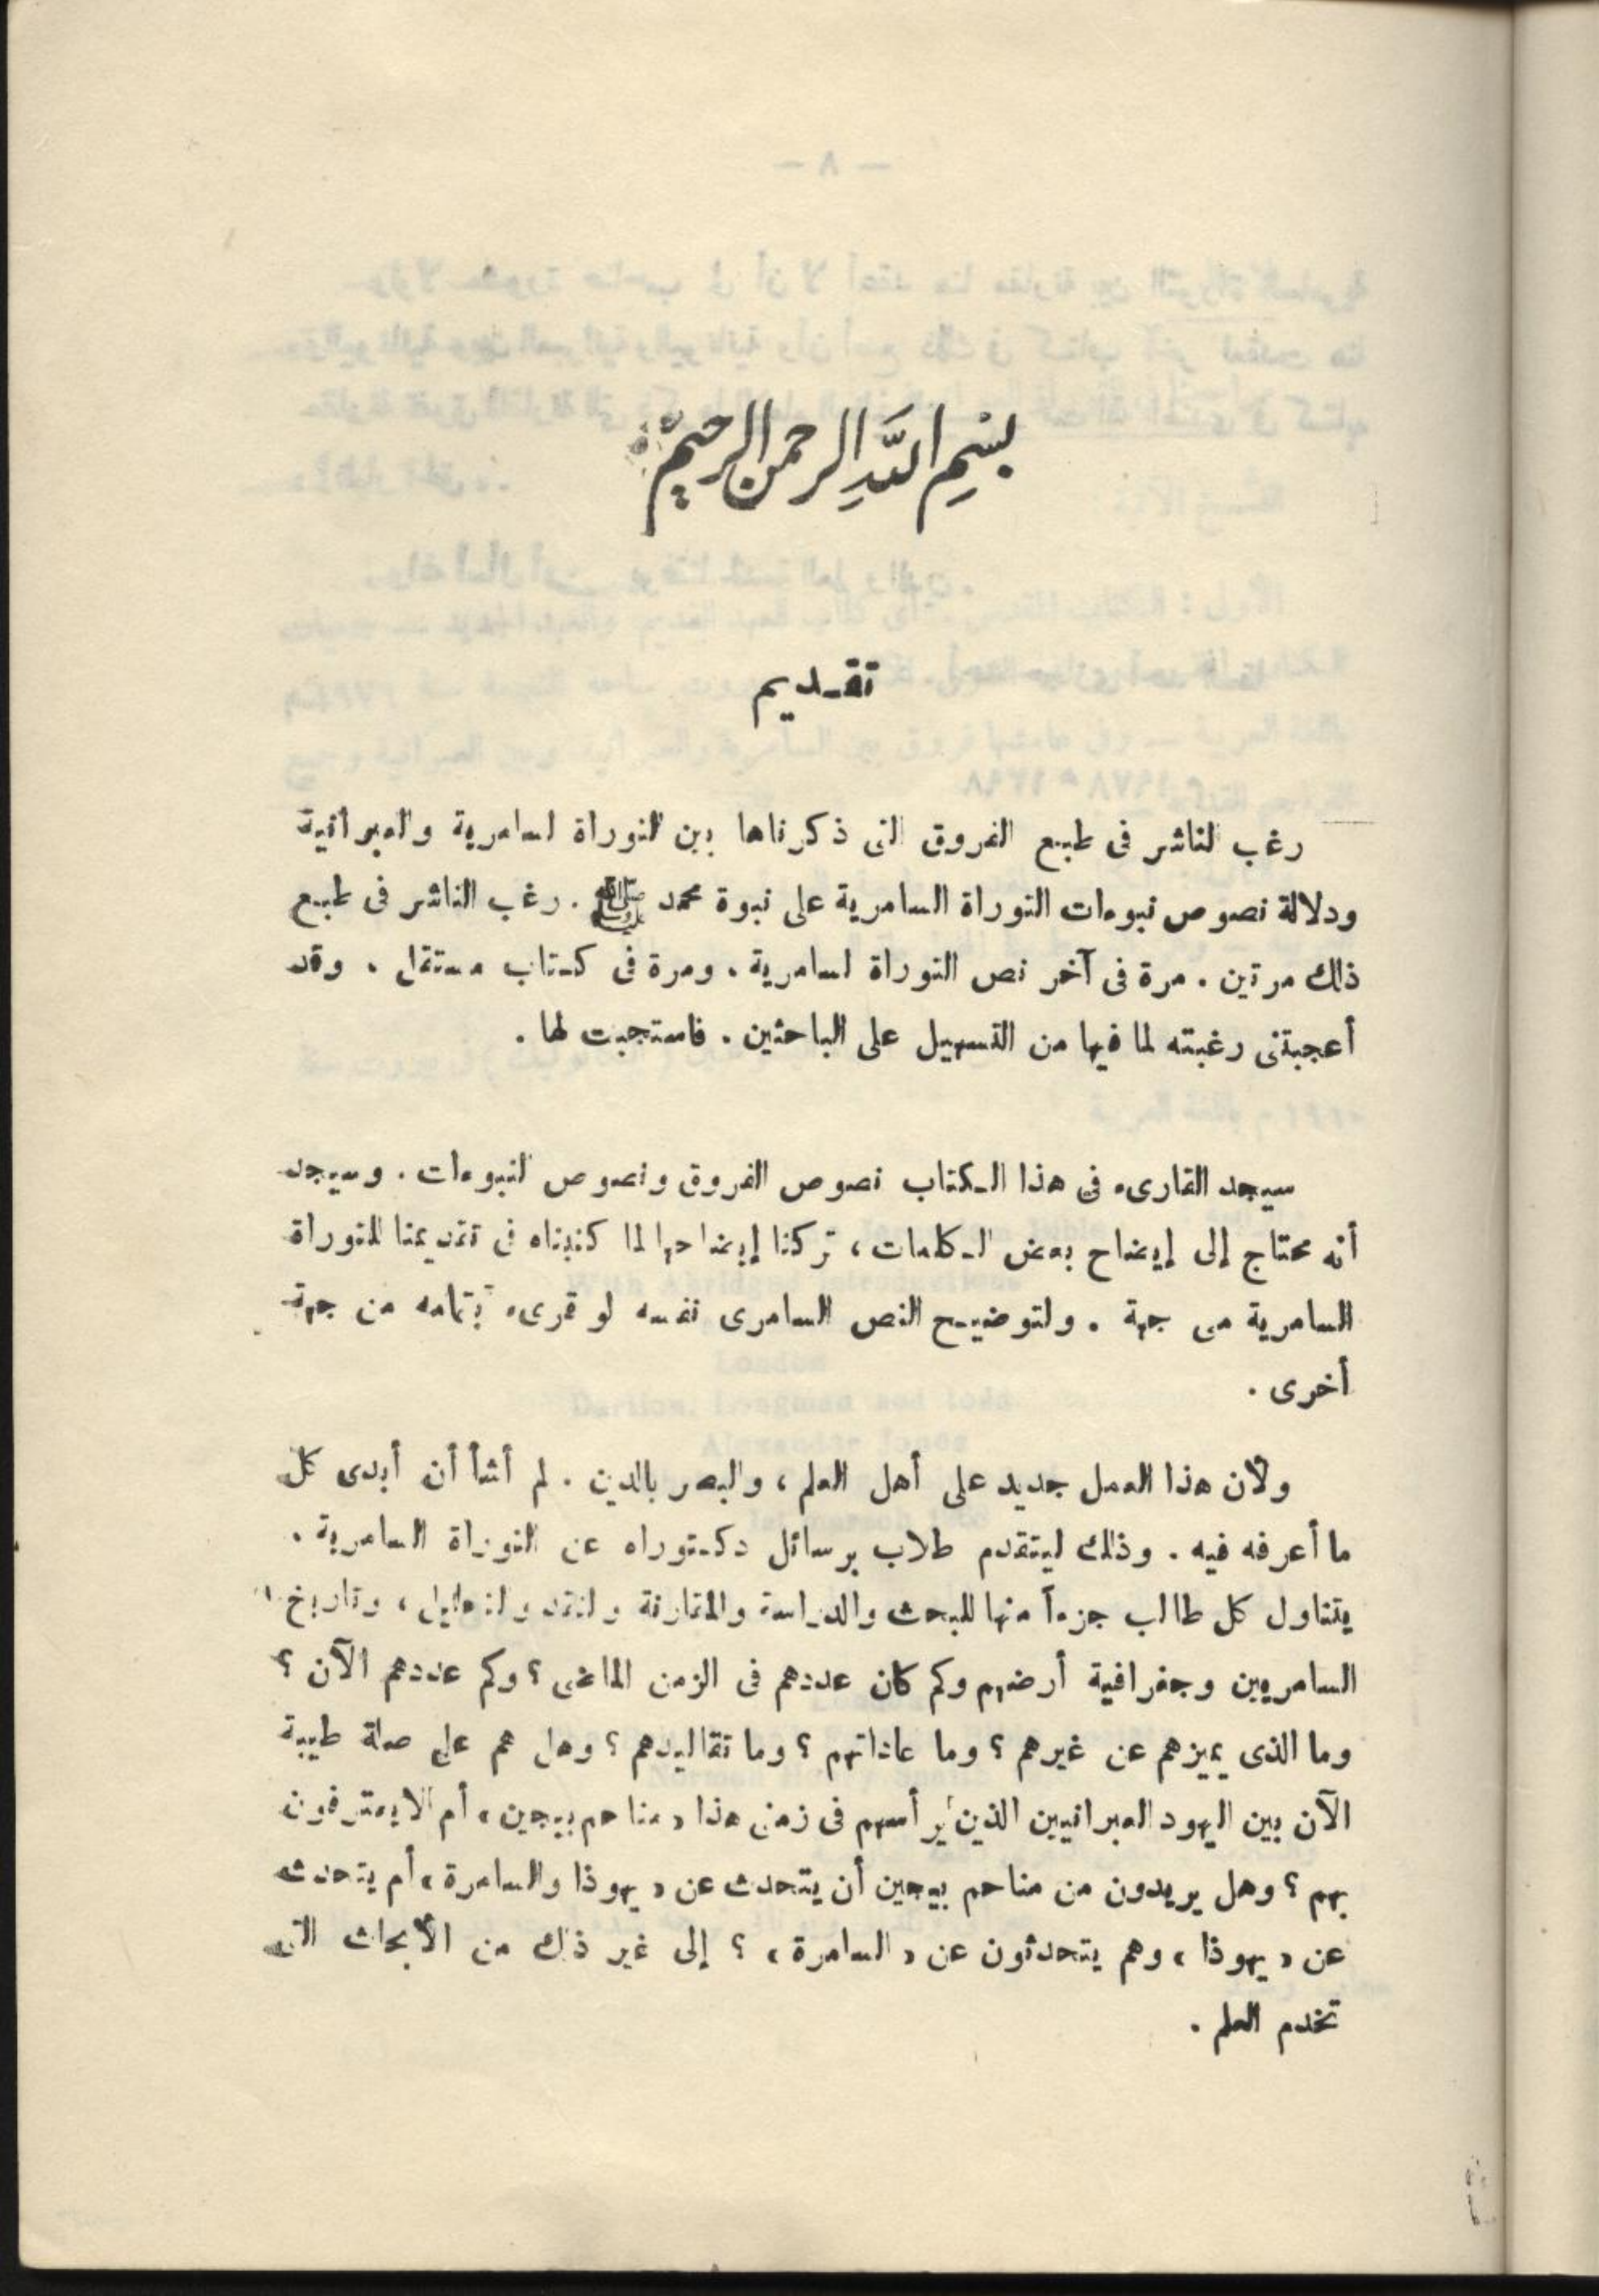 بسم الله الرحمن الرحيم
تقديم
رغب الناشر فى طبع الفروق التى ذكرناها بين التوراة السامرية والعبرانية
ودلالة نصوص نبوءات التوراة السامرية على نبوة محمد ﷺ . رغب الناشر فى طبع
ذلك مرتين . مرة فى آخر نص التوراة السامرية . ومرة فى كتاب مستقل . وقد
أعجبتنى رغبته لما فيها من التسهيل على الباحثين . فاستجبت لها .
سيجد القارىء فى هذا الكتاب نصوص الفروق ونصوص النبوءات . وسيجد
أنه محتاج إلى إيضاح بعض الكلمات ، تركنا إيضاحها لما كتبناه فى تقديمنا للتوراة
السامرية من جهة . ولتوضيح النص السامرى نفسه لو قرىء بتمامه من جهة
أخرى .
ولأن هذا العمل جديد على أهل العلم ، والبصر بالدين . لم أشأ أن أبدى كل
ما أعرفه فيه . وذلك ليتقدم طلاب برسائل دكتوراه عن التوراة السامرية .
يتناول كل طالب جزءاً منها للبحث والدراسة والمقارنة والنقد والتحليل ، وتاريخ
السامريين وجغرافية أرضهم وكم كان عددهم فى الزمن الماضى ؟ وكم عددهم الآن ؟
وما الذى يميزهم عن غيرهم ؟ وما عاداتهم ؟ وما تقاليدهم ؟ وهل هم على صلة طيبة
الآن بين اليهود العبرانيين الذين يرأسهم فى زمنى هذا « مناحم بيجين » أم لا يعترفون
بهم ؟ وهل يريدون من مناحم بيجين أن يتحدث عن « يهوذا والسامرة » أم يتحدث
عن « يهوذا » وهم يتحدثون عن « السامرة » ؟ إلى غير ذلك من الأبحاث التى
تخدم العلم .